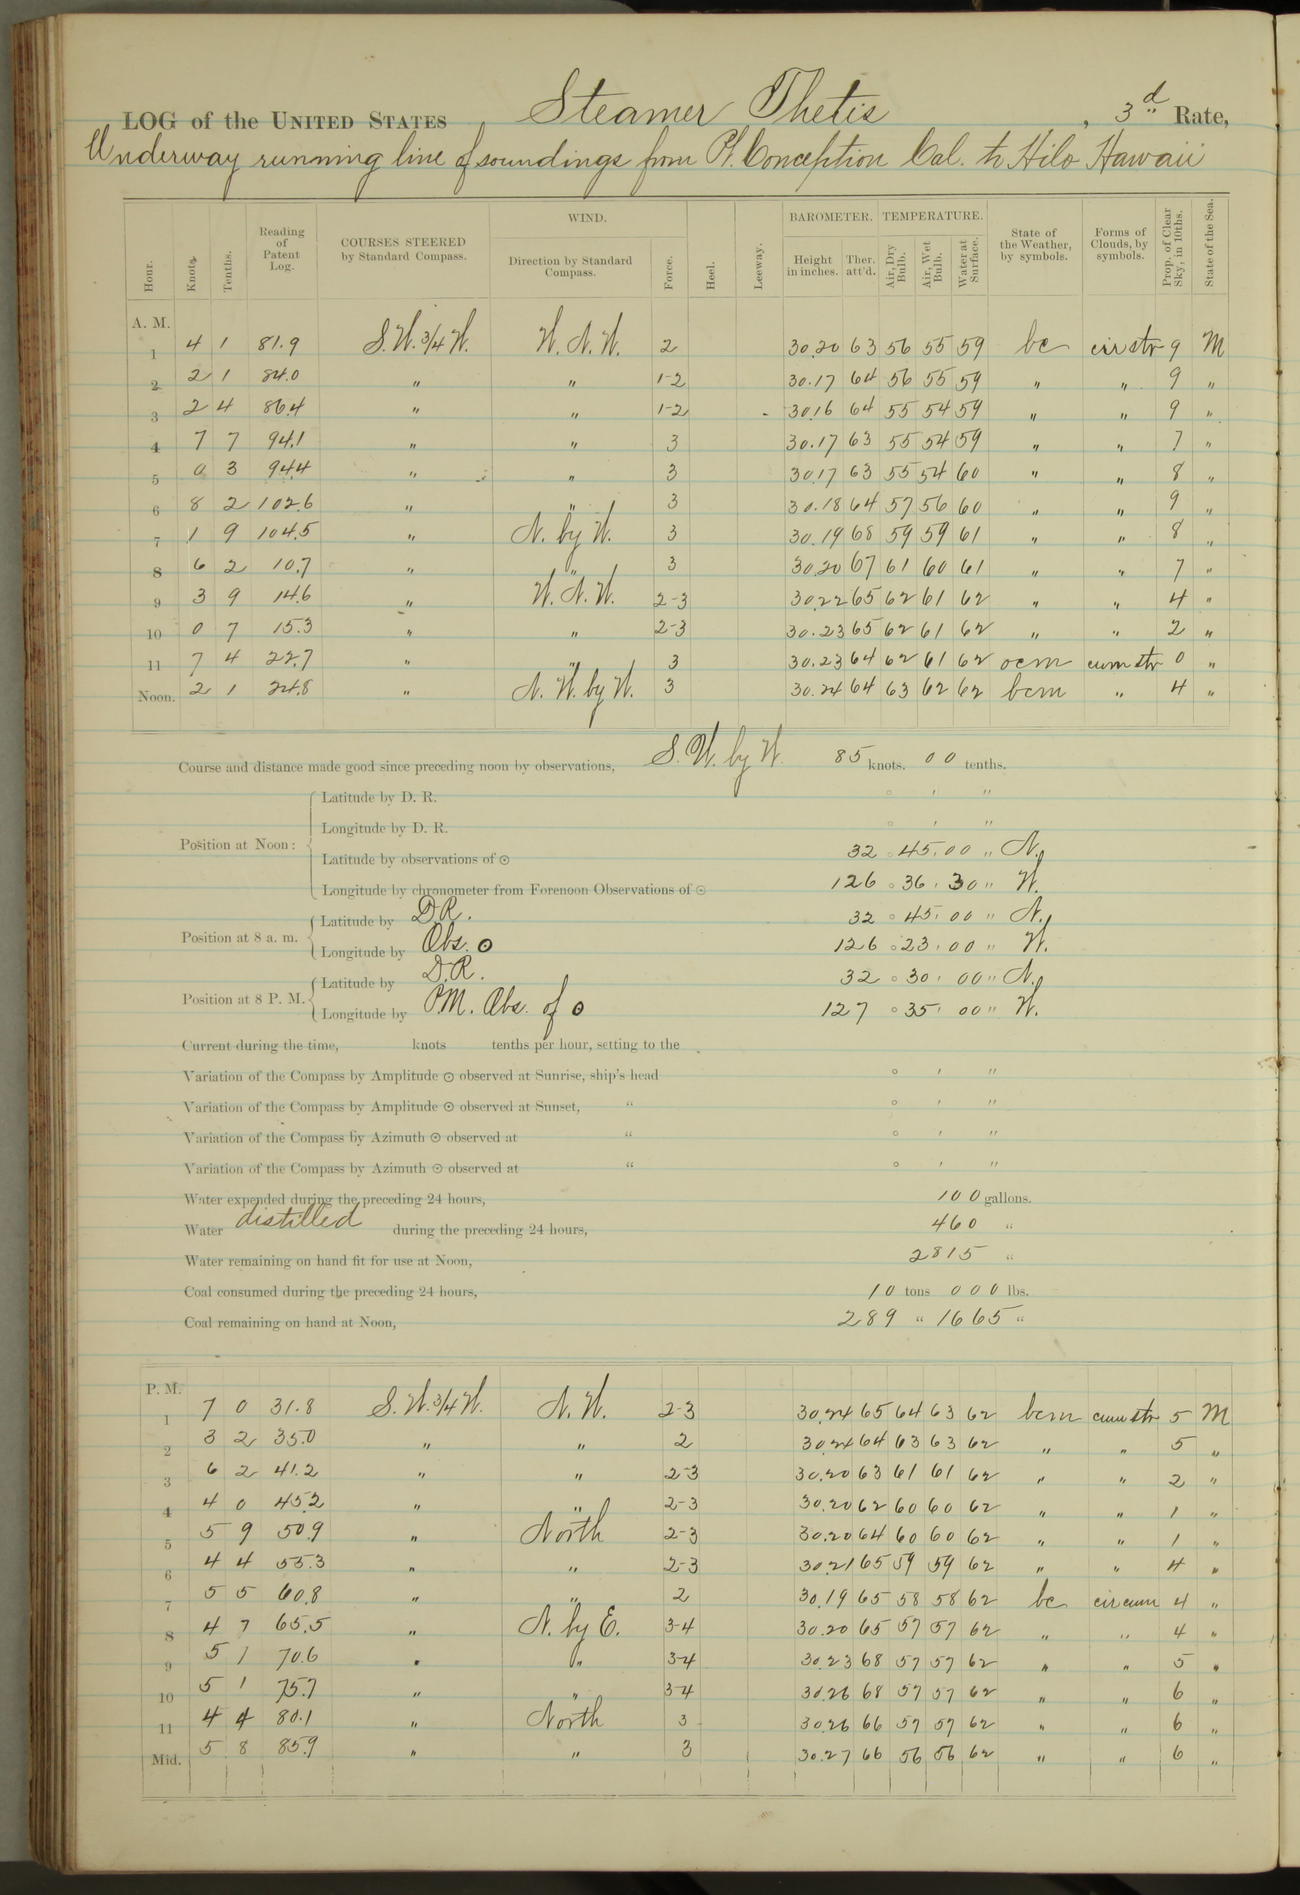 LOG of the UNITED STATES Steamer Thetis, 3d Rate,
Underway running line of soundings from Pt. Conception Cal. to Hilo Hawaii
Hour. Knots. Tenths. Reading of Patent Log. COURSES STEERED by Standard Compass. WIND. Direction by Standard Compass. Force. Heel. Leeway. BAROMETER. Height in inches. Ther. att'd. TEMPERATURE. Air, Dry Bulb. Air, Wet Bulb. Water at Surface. State of the Weather, by symbols. Forms of Clouds, by symbols. Prop. of Clear Sky, in 10ths. State of the Sea.
A. M.
1 4 1 81.9 S.W.3/4W. W.N.W. 2 30.20 63 56 55 59 bc cir str 9 M
2 2 1 84.0 " " 1-2 30.17 64 56 55 59 " " 9 "
3 2 4 86.4 " " 1-2 30.16 64 55 54 59 " " 9 "
4 7 7 94.1 " " 3 30.17 63 55 54 59 " " 7 "
5 0 3 94.4 " " 3 30.17 63 55 54 60 " " 8 "
6 8 2 102.6 " " 3 30.18 64 57 56 60 " " 9 "
7 1 9 104.5 " N. by W. 3 30.19 68 59 59 61 " " 8 "
8 6 2 10.7 " " 3 30.20 67 61 60 61 " " 7 "
9 3 9 14.6 " W.N.W. 2-3 30.22 65 62 61 62 " " 4 "
10 0 7 15.3 " " 2-3 30.23 65 62 61 62 " " 2 "
11 7 4 22.7 " " 3 30.23 64 62 61 62 ocm cum str 0 "
Noon. 2 1 24.8 " N.W. by W. 3 30.24 64 63 62 62 bcm " 4 "
Course and distance made good since preceding noon by observations, S.W. by W. 85 knots. 00 tenths.
Position at Noon: Latitude by D. R. ° ' "
Longitude by D. R. ° ' "
Latitude by observations of ☉ 32 ° 45 ' 00 " N.
Longitude by chronometer from Forenoon Observations of ☉ 126 ° 36 ' 30 " W.
Position at 8 a. m. Latitude by D.R. 32 ° 45 ' 00 " N.
Longitude by Obs. ☉ 126 ° 23 ' 00 " W.
Position at 8 P. M. Latitude by D.R. 32 ° 30 ' 00 " N.
Longitude by P.M. Obs. of ☉ 127 ° 35 ' 00 " W.
Current during the time, knots tenths per hour, setting to the
Variation of the Compass by Amplitude ☉ observed at Sunrise, ship's head ° ' "
Variation of the Compass by Amplitude ☉ observed at Sunset, " ° ' "
Variation of the Compass by Azimuth ☉ observed at " ° ' "
Variation of the Compass by Azimuth ☉ observed at " ° ' "
Water expended during the preceding 24 hours, 100 gallons.
Water distilled during the preceding 24 hours, 460 "
Water remaining on hand fit for use at Noon, 2815 "
Coal consumed during the preceding 24 hours, 10 tons 000 lbs.
Coal remaining on hand at Noon, 289 " 1665 "
P. M.
1 7 0 31.8 S.W.3/4W. N.W. 2-3 30.24 65 64 63 62 bcm cum str 5 M
2 3 2 35.0 " " 2 30.24 64 63 63 62 " " 5 "
3 6 2 41.2 " " 2-3 30.20 63 61 61 62 " " 2 "
4 4 0 45.2 " " 2-3 30.20 62 60 60 62 " " 1 "
5 5 9 50.9 " North 2-3 30.20 64 60 60 62 " " 1 "
6 4 4 55.3 " " 2-3 30.21 65 59 59 62 " " 4 "
7 5 5 60.8 " " 2 30.19 65 58 58 62 bc cir cum 4 "
8 4 7 65.5 " N. by E. 3-4 30.20 65 57 57 62 " " 4 "
9 5 1 70.6 " " 3-4 30.23 68 57 57 62 " " 5 "
10 5 1 75.7 " " 3-4 30.26 68 57 57 62 " " 6 "
11 4 4 80.1 " North 3 30.26 66 57 57 62 " " 6 "
Mid. 5 8 85.9 " " 3 30.27 66 56 56 62 " " 6 "